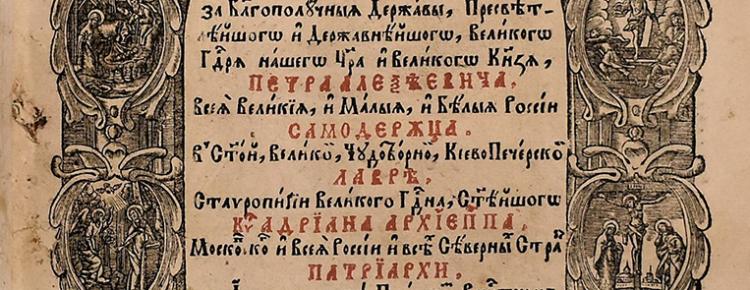 За Бл҃гополꙋчныѧ Державы, Пресвѣт-
лѣйшогѡ и҆ Державнѣйшогѡ, Великогѡ
Гдⷭ҇рѧ нашегѡ Цр҃ѧ и҆ Великогѡ Кн҃зѧ,
ПЕТРА АЛЕѮЇЕВИЧА,
всеѧ Великїѧ, и҆ Малыѧ, и҆ Бѣлыѧ Россїи
САМОДЕРЖЦА.
В̾ Ст҃ой, Великоⷨ, Чꙋдотворноⷨ, Кїево Печерскоⷨ
ЛАВРѢ,
Ставропигїи Великого Гдⷭ҇на, Ст҃ѣйшогѡ
Кѵⷬ АДРЇАНА АРХЇЕПⷭ҇ПА,
Московскоⷢ и҆ Всеѧ Россїи и҆ всѣⷯ Сѣверныⷯ Страⷩ
ПАТРЇАРХИ,